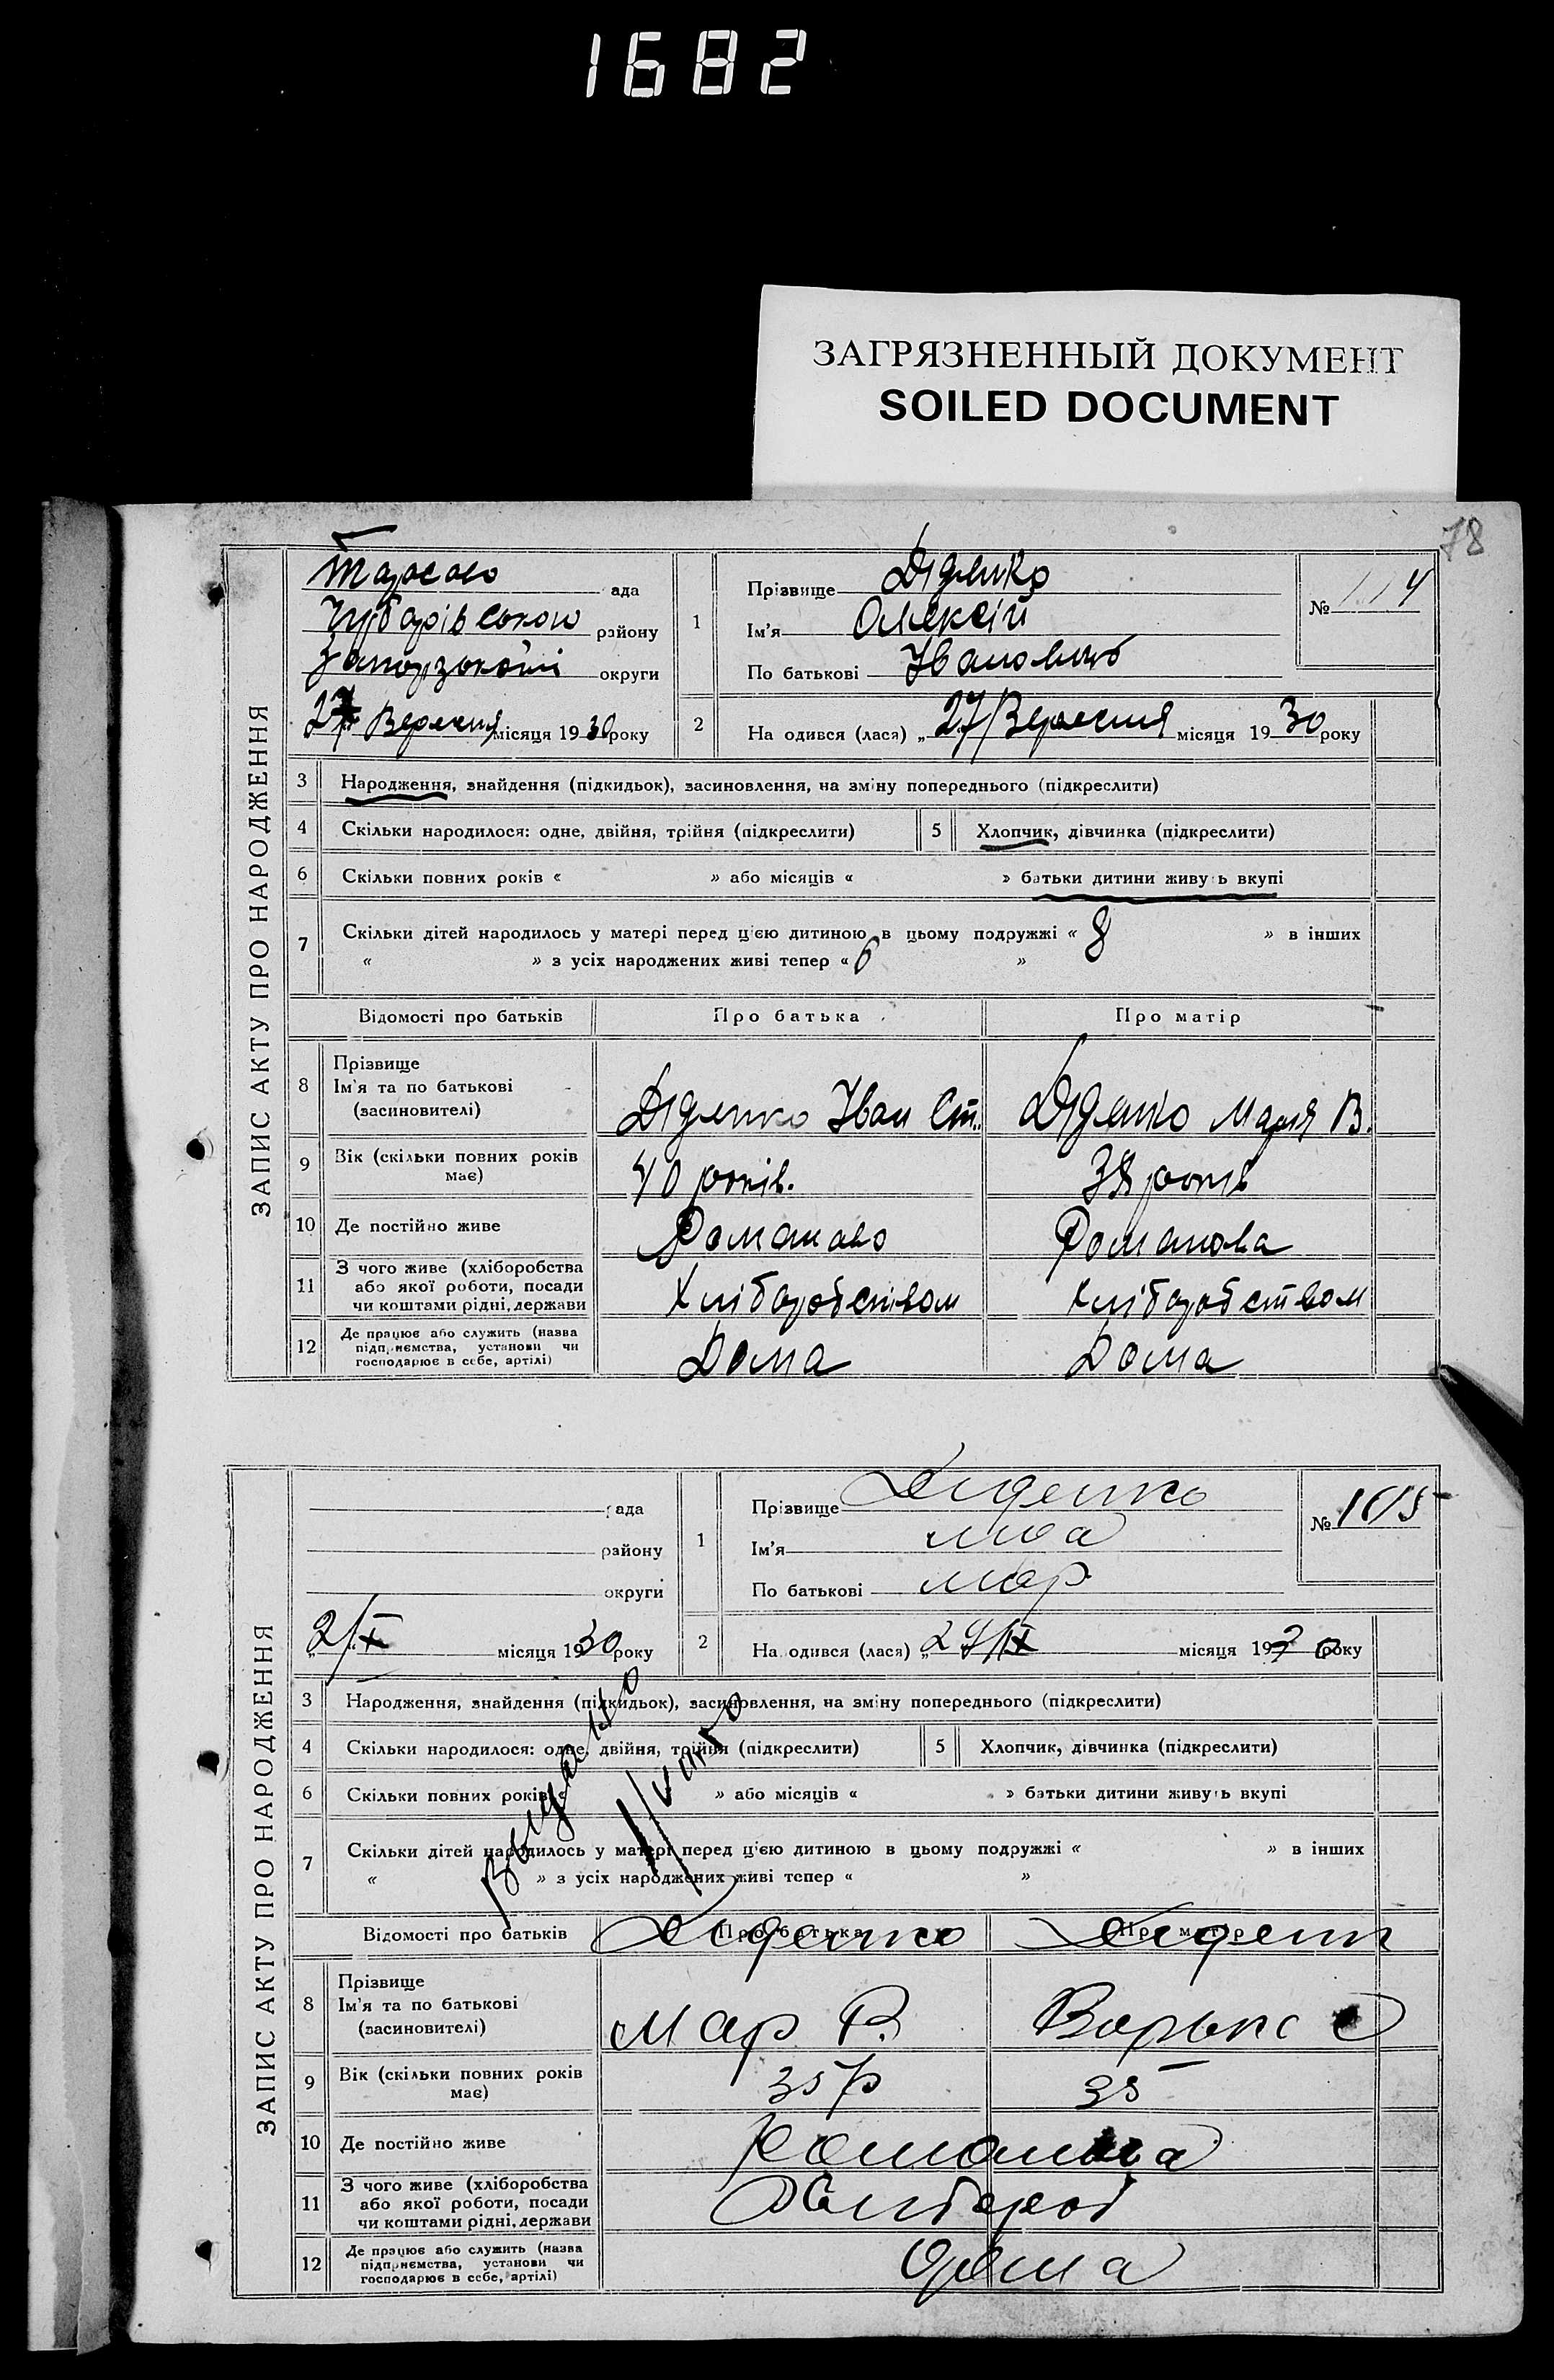 1682
ЗАГРЯЗНЕННЫЙ ДОКУМЕНТ
SOILED DOCUMENT
78
ЗАПИС АКТУ ПРО НАРОДЖЕННЯ
Тарасово ада
Чубарівського району
округи
27 Вересня місяця 1930 року
1
Прізвище Діденко
Ім'я Олексій
По батькові Іванович
№ 114
2 На одився (лася) „ 27/Вересня місяця 19 30 року
3 Народження, знайдення (підкидьок), засиновлення, на зміну попереднього (підкреслити)
4 Скільки народилося: одне, двійня, трійня (підкреслити) 5 Хлопчик, дівчинка (підкреслити)
6 Скільки повних років « » або місяців « » батьки дитини живуть вкупі
7 Скільки дітей народилось у матері перед цією дитиною в цьому подружжі « 8 » в інших
« » з усіх народжених живі тепер « 6 »
Відомості про батьків Про батька Про матір
8 Прізвище
Ім'я та по батькові
(засиновителі)
Діденко Іван Ст. Діденко Мария В.
9 Вік (скільки повних років має) 40 років. 38 років
10 Де постійно живе Романово Романова
11 З чого живе (хліборобства
або якої роботи, посади
чи коштами рідні, держави
Хліборобством Хліборобством
12 Де працює або служить (назва
підприємства, установи чи
господарює в себе, артілі)
Дома Дома
ЗАПИС АКТУ ПРО НАРОДЖЕННЯ
рада
району
округи
2/X місяця 1930 року
1
Прізвище Диденко
Ім'я
По батькові Мар
№ 105
2 На одився (лася) „ 27/IX місяця 1930 року
3 Народження, знайдення (підкидьок), засиновлення, на зміну попереднього (підкреслити)
4 Скільки народилося: одне, двійня, трійня (підкреслити) 5 Хлопчик, дівчинка (підкреслити)
6 Скільки повних років « » або місяців « » батьки дитини живуть вкупі
7 Скільки дітей народилось у матері перед цією дитиною в цьому подружжі « » в інших
« » з усіх народжених живі тепер « »
Відомості про батьків Про батька Про матір
Диденко Диденк
8 Прізвище
Ім'я та по батькові
(засиновителі)
Мар В.
9 Вік (скільки повних років має) 35 р 35
10 Де постійно живе Романова
11 З чого живе (хліборобства
або якої роботи, посади
чи коштами рідні, держави
Хлибороб
12 Де працює або служить (назва
підприємства, установи чи
господарює в себе, артілі)
дома